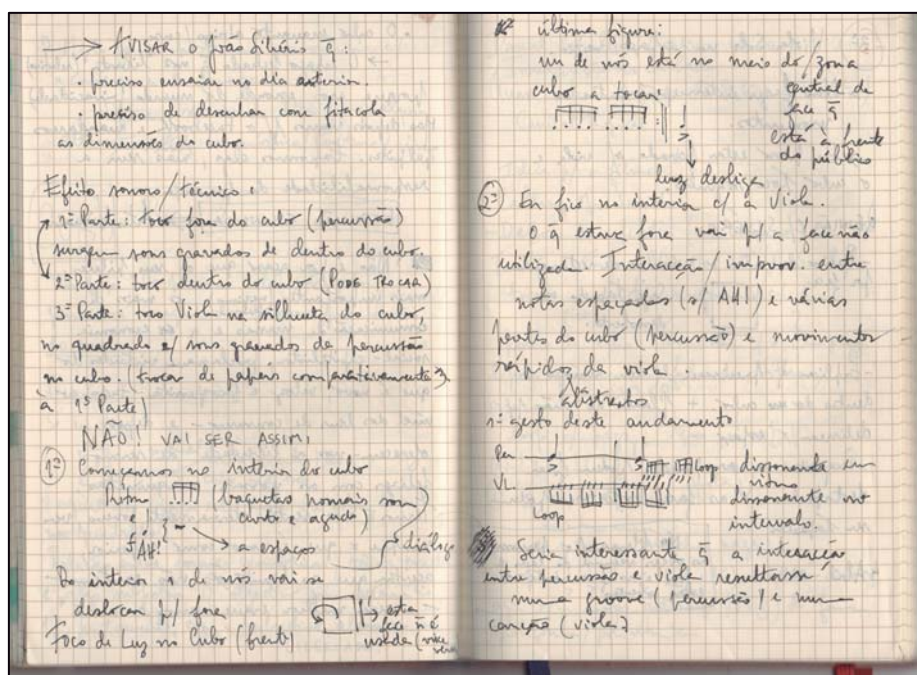 → AVISAR o João Silvério q̄:
· preciso ensaiar no dia anterior.
· preciso de desenhar com fitacola
as dimensões do cubo.
Efeito sonoro/técnico:
1ª Parte: toco fora do cubo (percussão)
surgem sons gravados de dentro do cubo.
2ª Parte: toco dentro do cubo (PODE TROCAR)
3ª Parte: toco Viola na silhueta do cubo,
no quadrado c/ sons gravados de percussão
no cubo. (trocar de papéis comparativamente
à 1ª Parte)
NÃO! VAI SER ASSIM:
1º Começamos no interior do cubo
Ritmo (baquetas normais som
curto e agudo)
e
f ÁH! → a espaços diálogo
Do interior 1 de nós vai se
deslocar p/ fora
Foco de Luz no Cubo (frente)
esta
face ñ é
usada (vice
versa
última figura:
um de nós está no meio do/zona
cubo a tocar: central de
face q̄
está à frente
do público
luz desliga
2º Eu fico no interior c/ a Viola.
O q̄ estava fora vai p/ a face não
utilizada. Interacção/improv. entre
notas espaçadas (s/ AH!) e várias
partes do cubo (percussão) e movimentos
rápidos da viola.
abstratos
1º gesto deste andamento
Per Loop dissonância em
Vl. ritmo
dissonante no
Loop intervalo.
Seria interessante q̄ a interacção
entre percussão e viola resultasse
num groove (percussão) e numa
canção (viola)